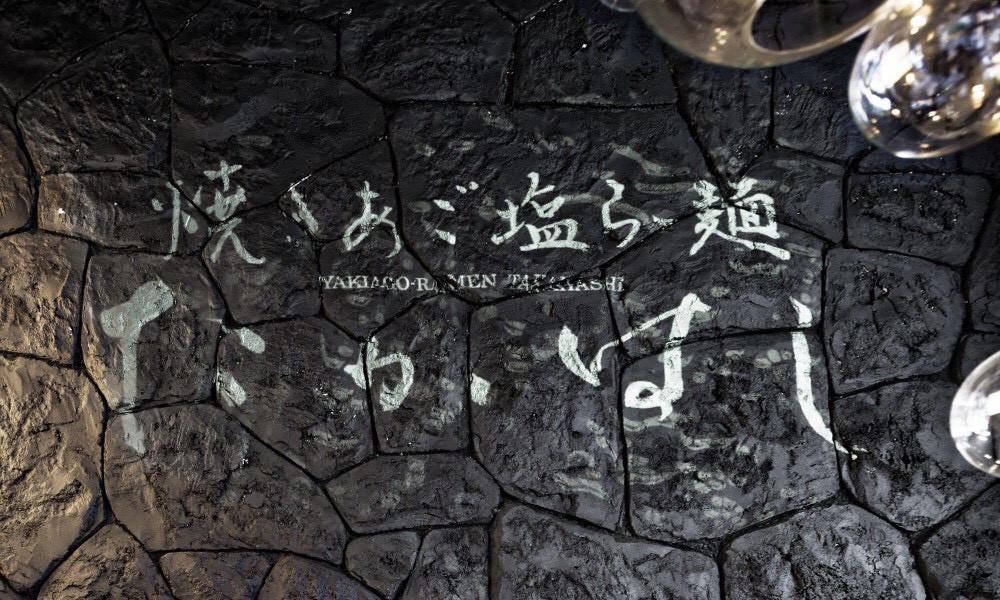 焼きあご塩らー麺
YAKIAGO-RAMEN TAKAHASHI
たかはし